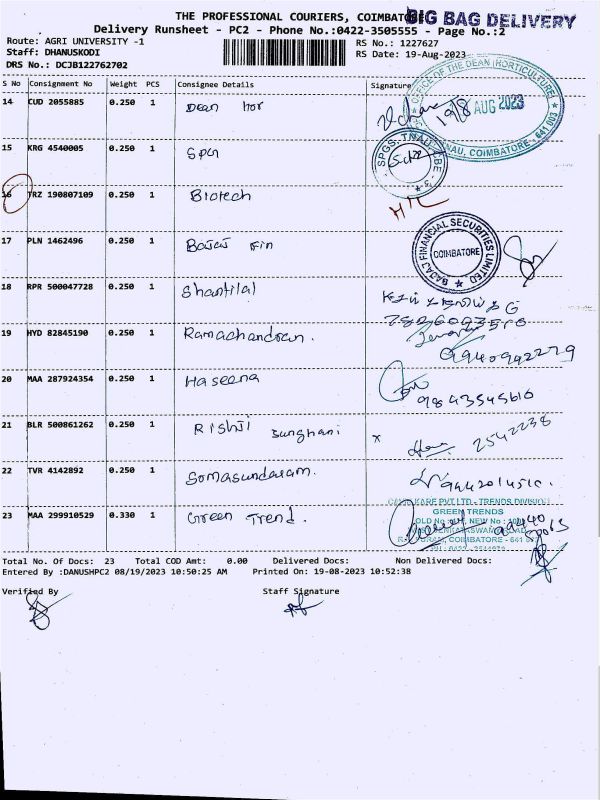 THE PROFESSIONAL COURIERS, COIMBATORE
BIG BAG DELIVERY
Delivery Runsheet - PC2 - Phone No.:0422-3505555 - Page No.:2
Route: AGRI UNIVERSITY -1
RS No.: 1227627
Staff: DHANUSKODI
RS Date: 19-Aug-2023
DRS No.: DCJB122762702
S No Consignment No Weight PCS Consignee Details Signature
OFFICE OF THE DEAN (HORTICULTURE)
14 CUD 2055885 0.250 1 Dean hor
19/8 AUG 2023
TNAU, COIMBATORE - 641 003
15 KRG 4540005 0.250 1 SPG
SPGS, TNAU, CBE - 3
16 TRZ 190807109 0.250 1 Biotech
17 PLN 1462496 0.250 1 Bajaj Fin
BAJAJ FINANCIAL SECURITIES LIMITED
COIMBATORE
18 RPR 500047728 0.250 1 Shantilal
19 HYD 82845190 0.250 1 Ramachandran.
9940942279
20 MAA 287924354 0.250 1 Haseena
9843545610
21 BLR 500861262 0.250 1 Rishji Sunghani x
2542238
22 TVR 4142892 0.250 1 Somasundaram.
KARE PVT LTD - TRENDS DIVISION
GREEN TRENDS
23 MAA 299910529 0.330 1 Green Trend.
COIMBATORE - 641
Total No. Of Docs: 23 Total COD Amt: 0.00 Delivered Docs: Non Delivered Docs:
Entered By :DANUSHPC2 08/19/2023 10:50:25 AM Printed On: 19-08-2023 10:52:38
Verified By Staff Signature